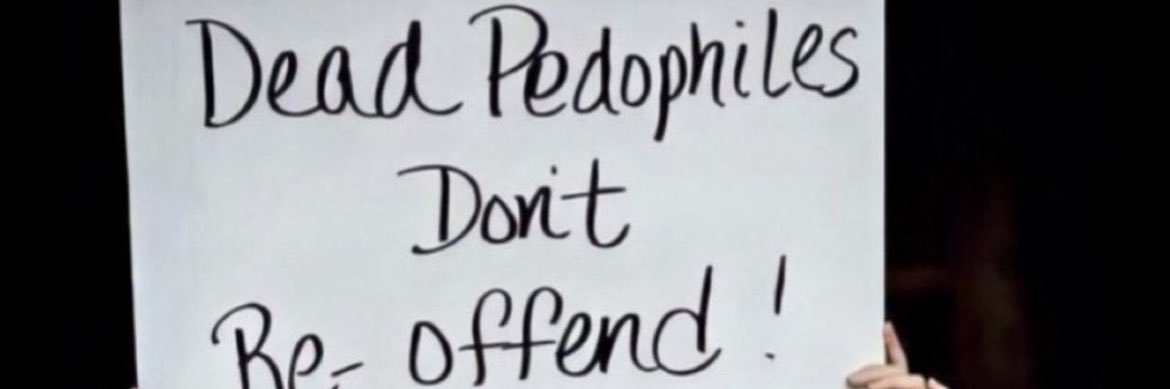 Dead Pedophiles
Don't
Re-offend!